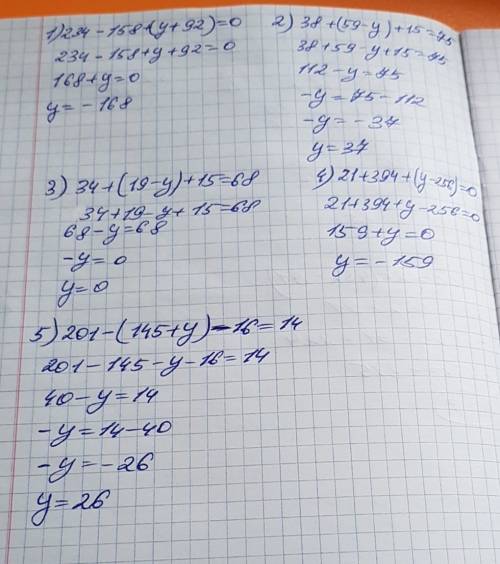 1) 234-158+(y+92)=0
234-158+y+92=0
168+y=0
y=-168
2) 38+(59-y)+15=75
38+59-y+15=75
112-y=75
-y=75-112
-y=-37
y=37
3) 34+(19-y)+15=68
34+19-y+15=68
68-y=68
-y=0
y=0
4) 21+394+(y-256)=0
21+394+y-256=0
159+y=0
y=-159
5) 201-(145+y)-16=14
201-145-y-16=14
40-y=14
-y=14-40
-y=-26
y=26